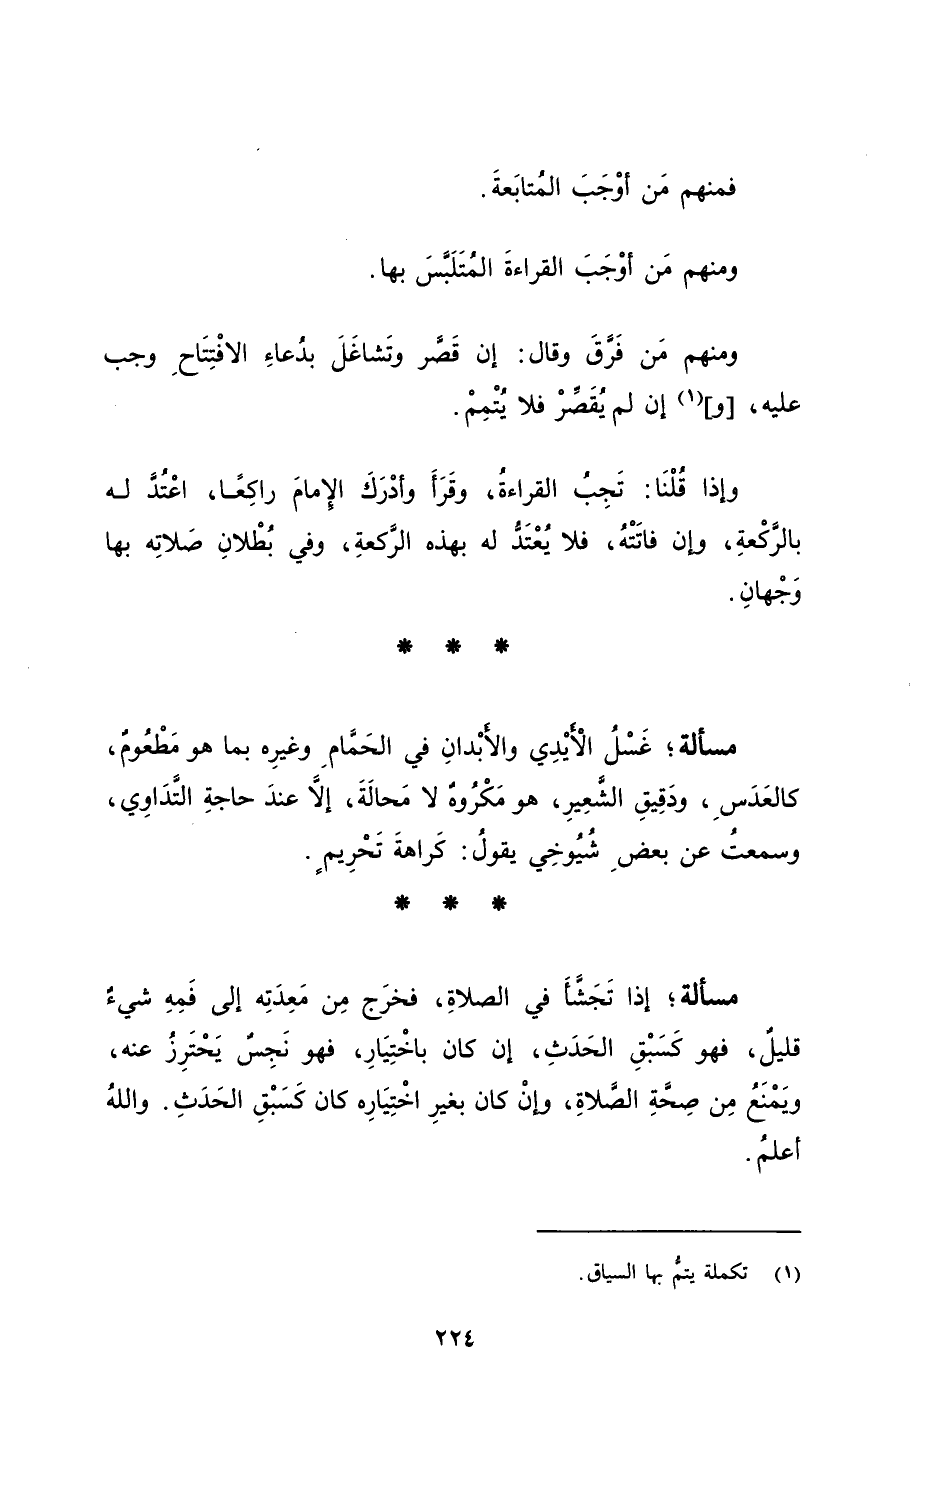 فمنهم مَن أوْجَبَ المُتابَعةَ.
ومنهم مَن أوْجَبَ القراءةَ المُتَلَبَّسَ بها.
ومنهم مَن فَرَّقَ وقال: إن قَصَّر وتَشاغَلَ بدُعاءِ الافْتِتَاحِ وجب
عليه، [و]⁽١⁾ إن لم يُقَصِّرْ فلا يُتْمِمْ.
وإذا قُلْنَا: تَجِبُ القراءةُ، وقَرَأَ وأدْرَكَ الإمامَ راكِعًـا، اعْتُدَّ لـه
بالرَّكْعةِ، وإن فاتَتْهُ، فلا يُعْتَدُّ له بهذه الرَّكعةِ، وفي بُطْلانِ صَلاتِه بها
وَجْهانِ.
* * *
مسألة؛ غَسْلُ الْأَيْدِي والأَبْدانِ في الحَمَّامِ وغيرِه بما هو مَطْعُومٌ،
كالعَدَسِ، ودَقِيقِ الشَّعِيرِ، هو مَكْرُوهٌ لا مَحالَةَ، إلاَّ عندَ حاجةِ التَّدَاوِي،
وسمعتُ عن بعضِ شُيُوخِي يقولُ: كَراهةَ تَحْرِيمٍ.
* * *
مسألة؛ إذا تَجَشَّأَ في الصلاةِ، فخرَج مِن مَعِدَتِه إلى فَمِهِ شيءٌ
قليلٌ، فهو كَسَبْقِ الحَدَثِ، إن كان باخْتِيَارٍ، فهو نَجِسٌ يَحْتَرِزُ عنه،
ويَمْنَعُ مِن صِحَّةِ الصَّلاةِ، وإنْ كان بغيرِ اخْتِيَارِه كان كَسَبْقِ الحَدَثِ. واللهُ
أعلمُ.
(١) تكملة يتمُّ بها السياق.
٢٢٤